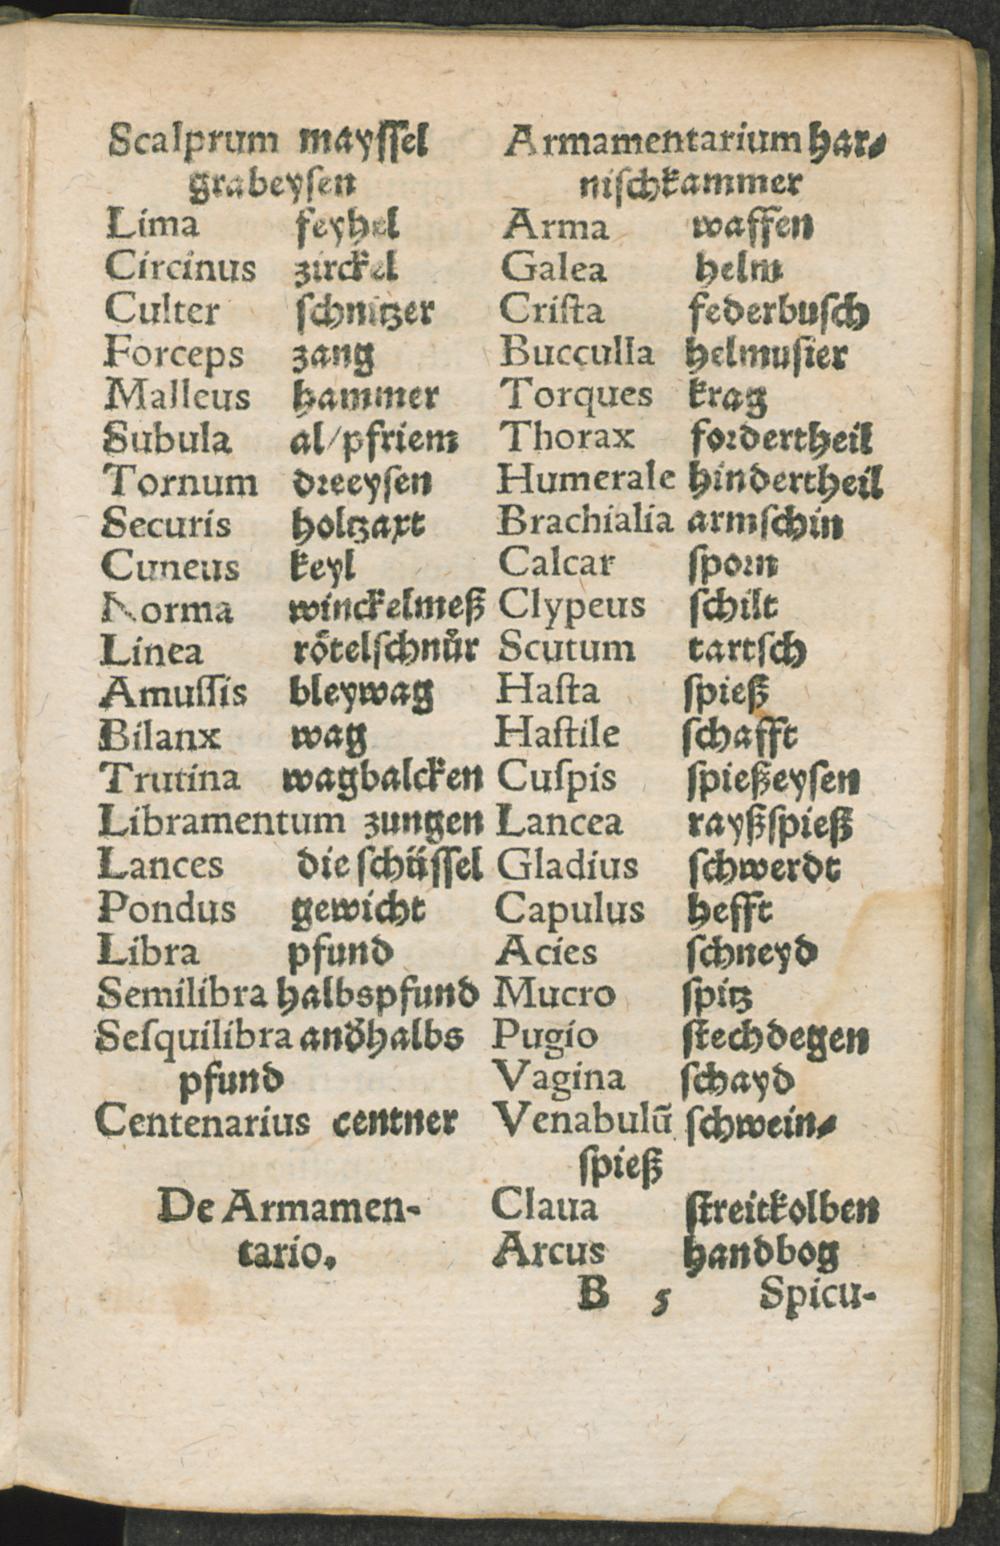 Scalprum mayſſel
grabeyſen
Lima feyhel
Circinus zirckel
Culter ſchnitzer
Forceps zang
Malleus hammer
Subula al/pfriem
Tornum dreeyſen
Securis holtzaxt
Cuneus keyl
Norma winckelmeß
Linea roͤtelſchnuͤr
Amuſſis bleywag
Bilanx wag
Trutina wagbalcken
Libramentum zungen
Lances die ſchüſſel
Pondus gewicht
Libra pfund
Semilibra halbspfund
Seſquilibra andhalbs
pfund
Centenarius centner
De Armamen-
tario.
Armamentarium har⸗
niſchkammer
Arma waffen
Galea helm
Criſta federbuſch
Bucculla helmuſier
Torques krag
Thorax fordertheil
Humerale hindertheil
Brachialia armſchin
Calcar ſporn
Clypeus ſchilt
Scutum tartſch
Haſta ſpieß
Haſtile ſchafft
Cuſpis ſpießeyſen
Lancea rayßſpieß
Gladius ſchwerdt
Capulus hefft
Acies ſchneyd
Mucro ſpitz
Pugio ſtechdegen
Vagina ſchayd
Venabulū ſchwein⸗
ſpieß
Claua ſtreitkolben
Arcus handbog
B 5 Spicu-